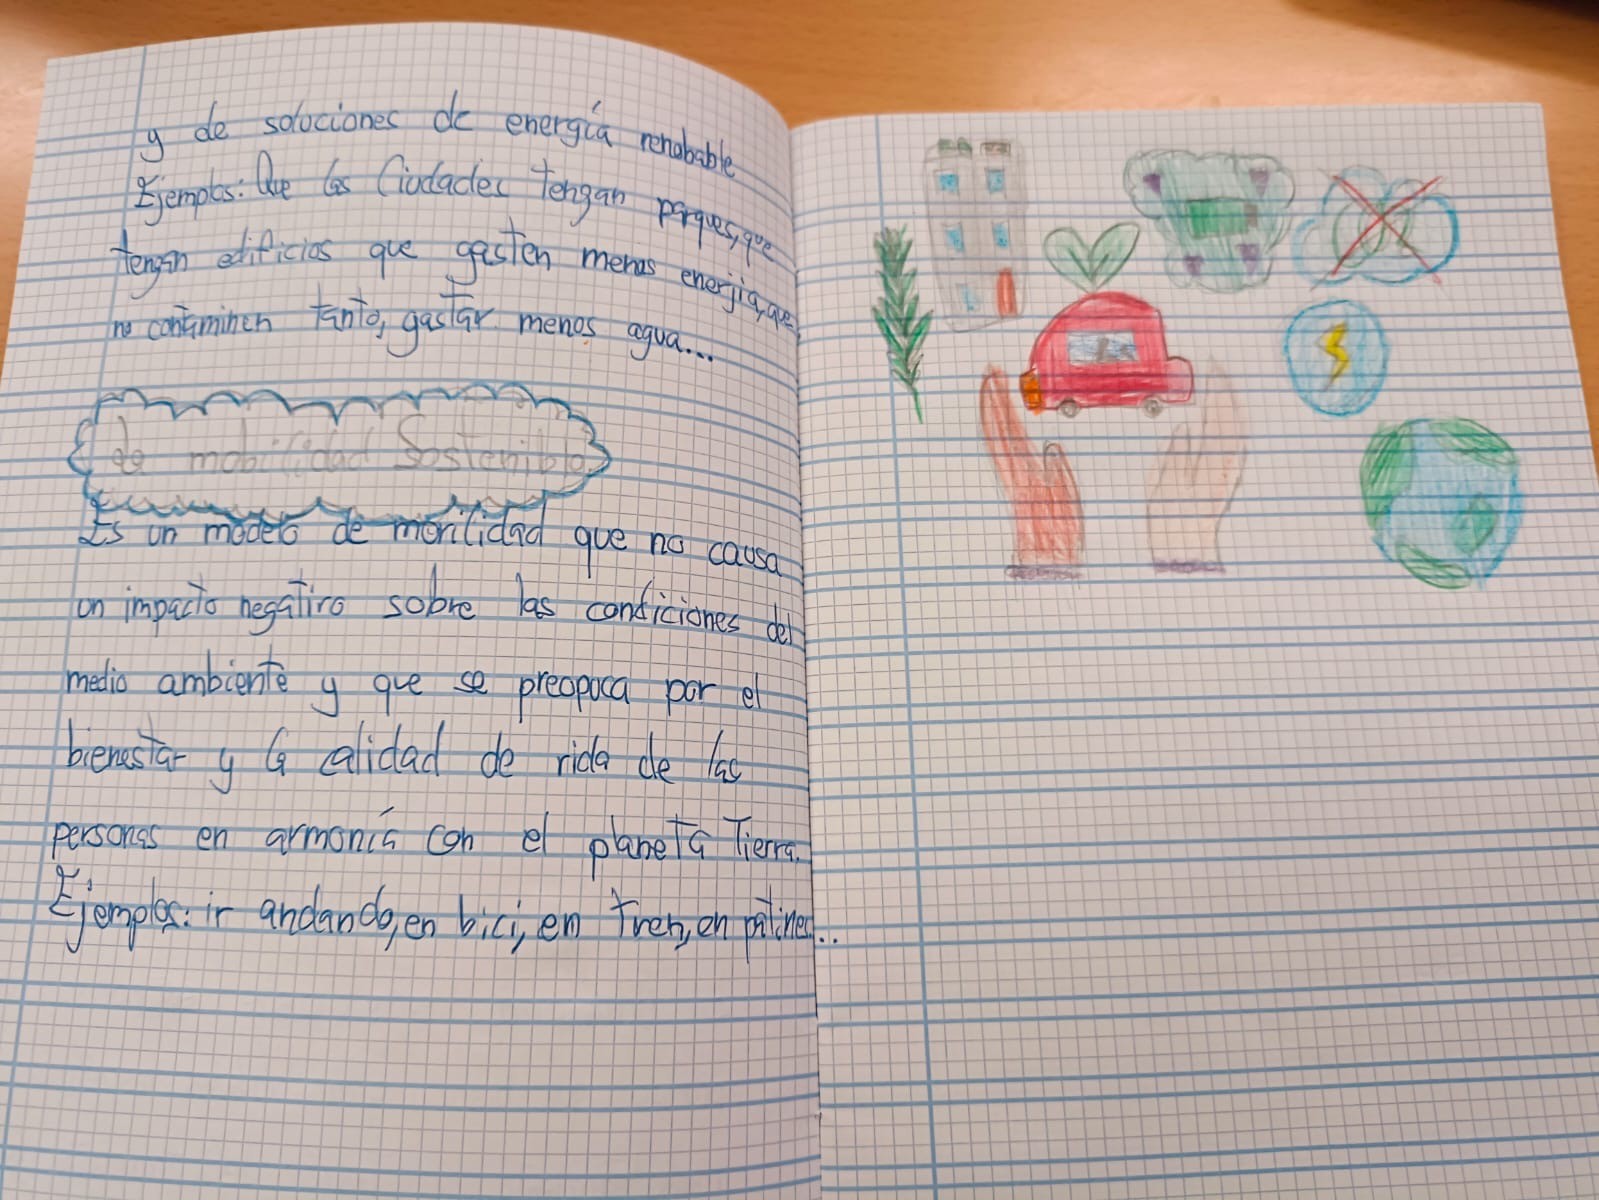 y de soluciones de energía renobable
Ejemplos: Que las Ciudades tengan parques, que
tengan edificios que gasten menos enerjia, que
no contaminen tanto, gastar menos agua...
de mobilidad Sostenible
Es un modelo de movilidad que no causa
un impacto negativo sobre las condiciones del
medio ambiente y que se preopuca por el
bienestar y la calidad de vida de las
personas en armonía con el planeta Tierra.
Ejemplos: ir andando, en bici, en tren, en patines...